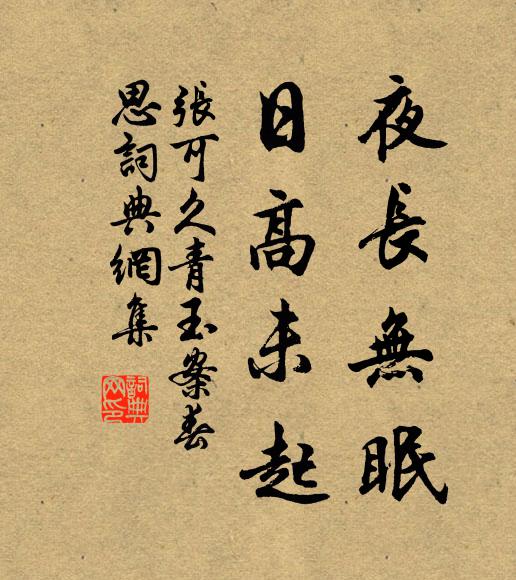 夜長無眠
日高未起
張可久青玉案春
思詞典網集
詞典
网印